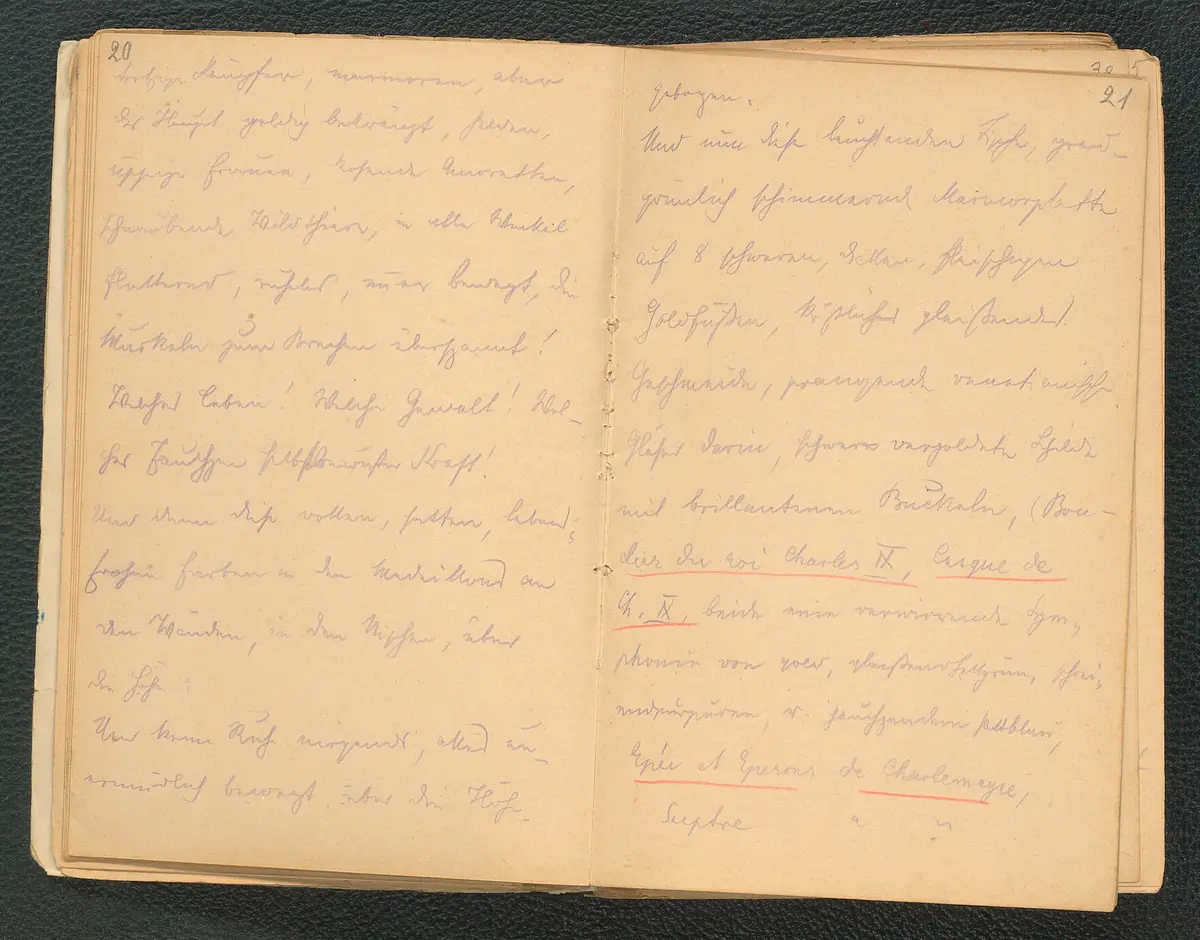 20
trotzige Kämpfer, marmoren, aber
das Haupt goldig bekränzt, Helden,
üppige Frauen, kosende Amoretten,
schnaubende Wildthiere, in alle Winkel
flatternd, ruhelos, immer bewegt, die
Muskeln zum Brechen überspannt!
Welches Leben! Welche Gewalt! Wel-
ches Jauchzen selbstbewußter Kraft!
Und dann diese vollen, satten, lebens-
frohen Farben in den Medaillons an
den Wänden, in den Nischen, über
die Höhe.
Und keine Ruhe nirgends, alles un-
ermüdlich bewegt, über die Höhe
30 5
21
gebogen.
Und nun diese leuchtenden Tische, grau-
grünlich schimmernde Marmorplatte
auf 8 schweren, dicken, fleischigen
Goldfüßen, köstliches gleißendes
Geschmeide, prangende venetianische
Gläser darin, schwere vergoldete Schilde
mit brillantenen Buckeln, (Bou-
clier du roi Charles IX, Casque de
Ch. IX, beide eine verwirrende Sym-
phonie von gold, gleißend hellgrün, schrei-
endpurpuren, u. jauchzendem sattblau,
Epée et Eperons de Charlemagne,
Sceptre " "